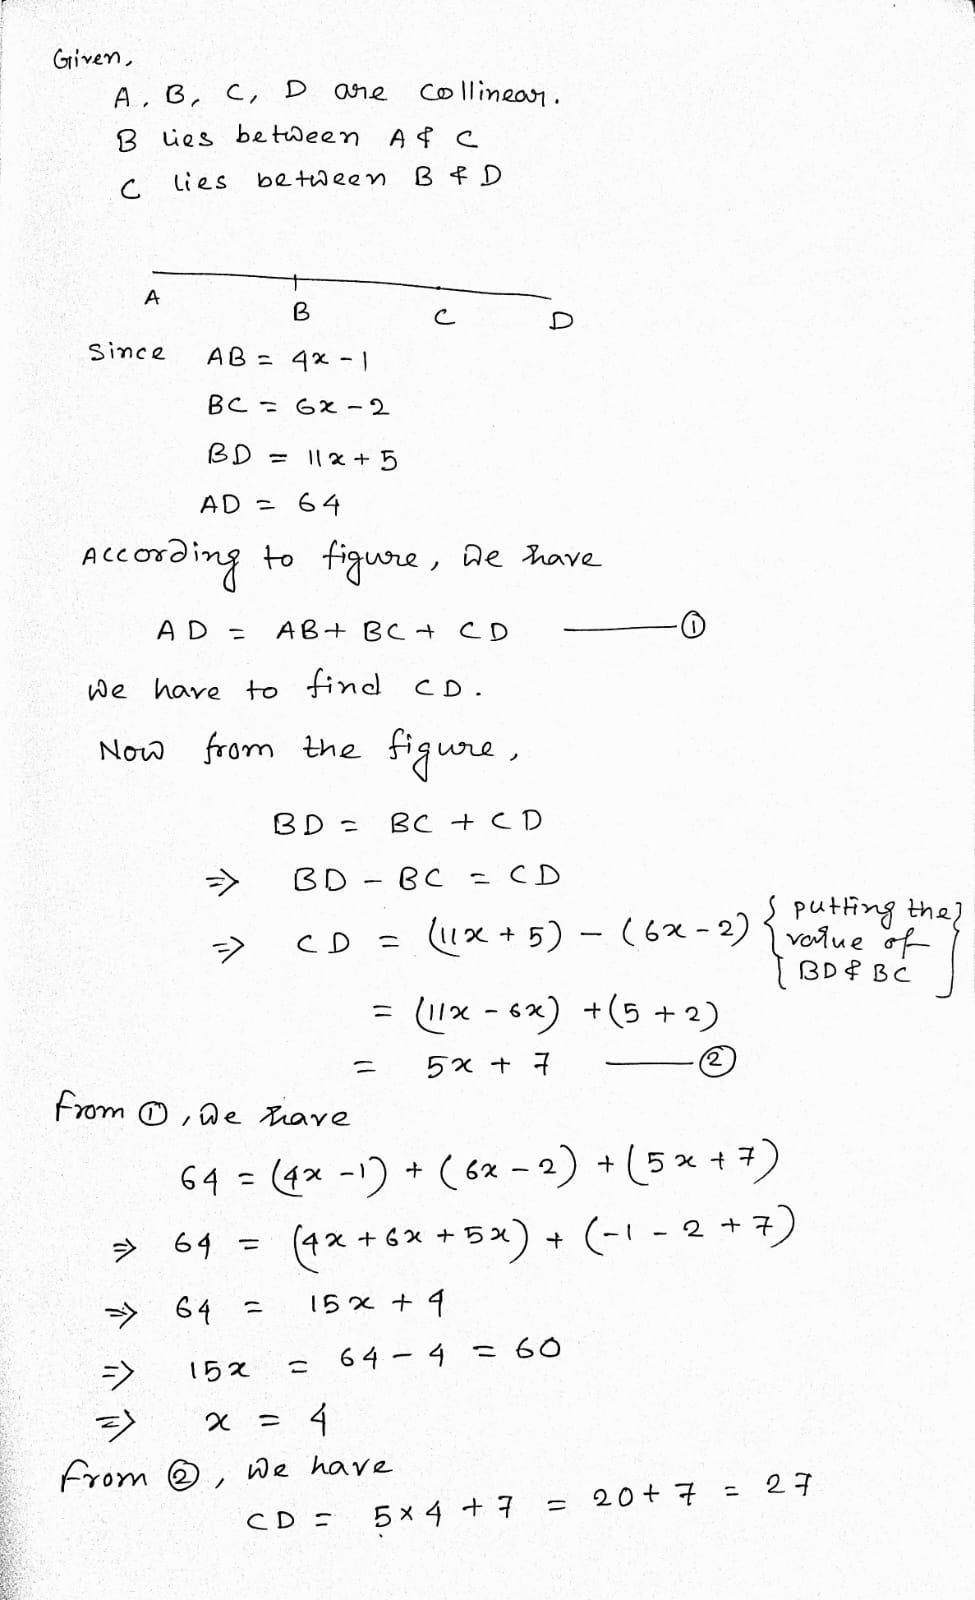 Given,
A, B, C, D are collinear.
B lies between A & C
C lies between B & D
A B C D
Since AB = 4x - 1
BC = 6x - 2
BD = 11x + 5
AD = 64
According to figure, we have
AD = AB + BC + CD —— ①
We have to find CD.
Now from the figure,
BD = BC + CD
⇒ BD - BC = CD
⇒ CD = (11x + 5) - (6x - 2) { putting the value of BD & BC }
= (11x - 6x) + (5 + 2)
= 5x + 7 —— ②
From ①, we have
64 = (4x - 1) + (6x - 2) + (5x + 7)
⇒ 64 = (4x + 6x + 5x) + (-1 - 2 + 7)
⇒ 64 = 15x + 4
⇒ 15x = 64 - 4 = 60
⇒ x = 4
From ②, we have
CD = 5 × 4 + 7 = 20 + 7 = 27